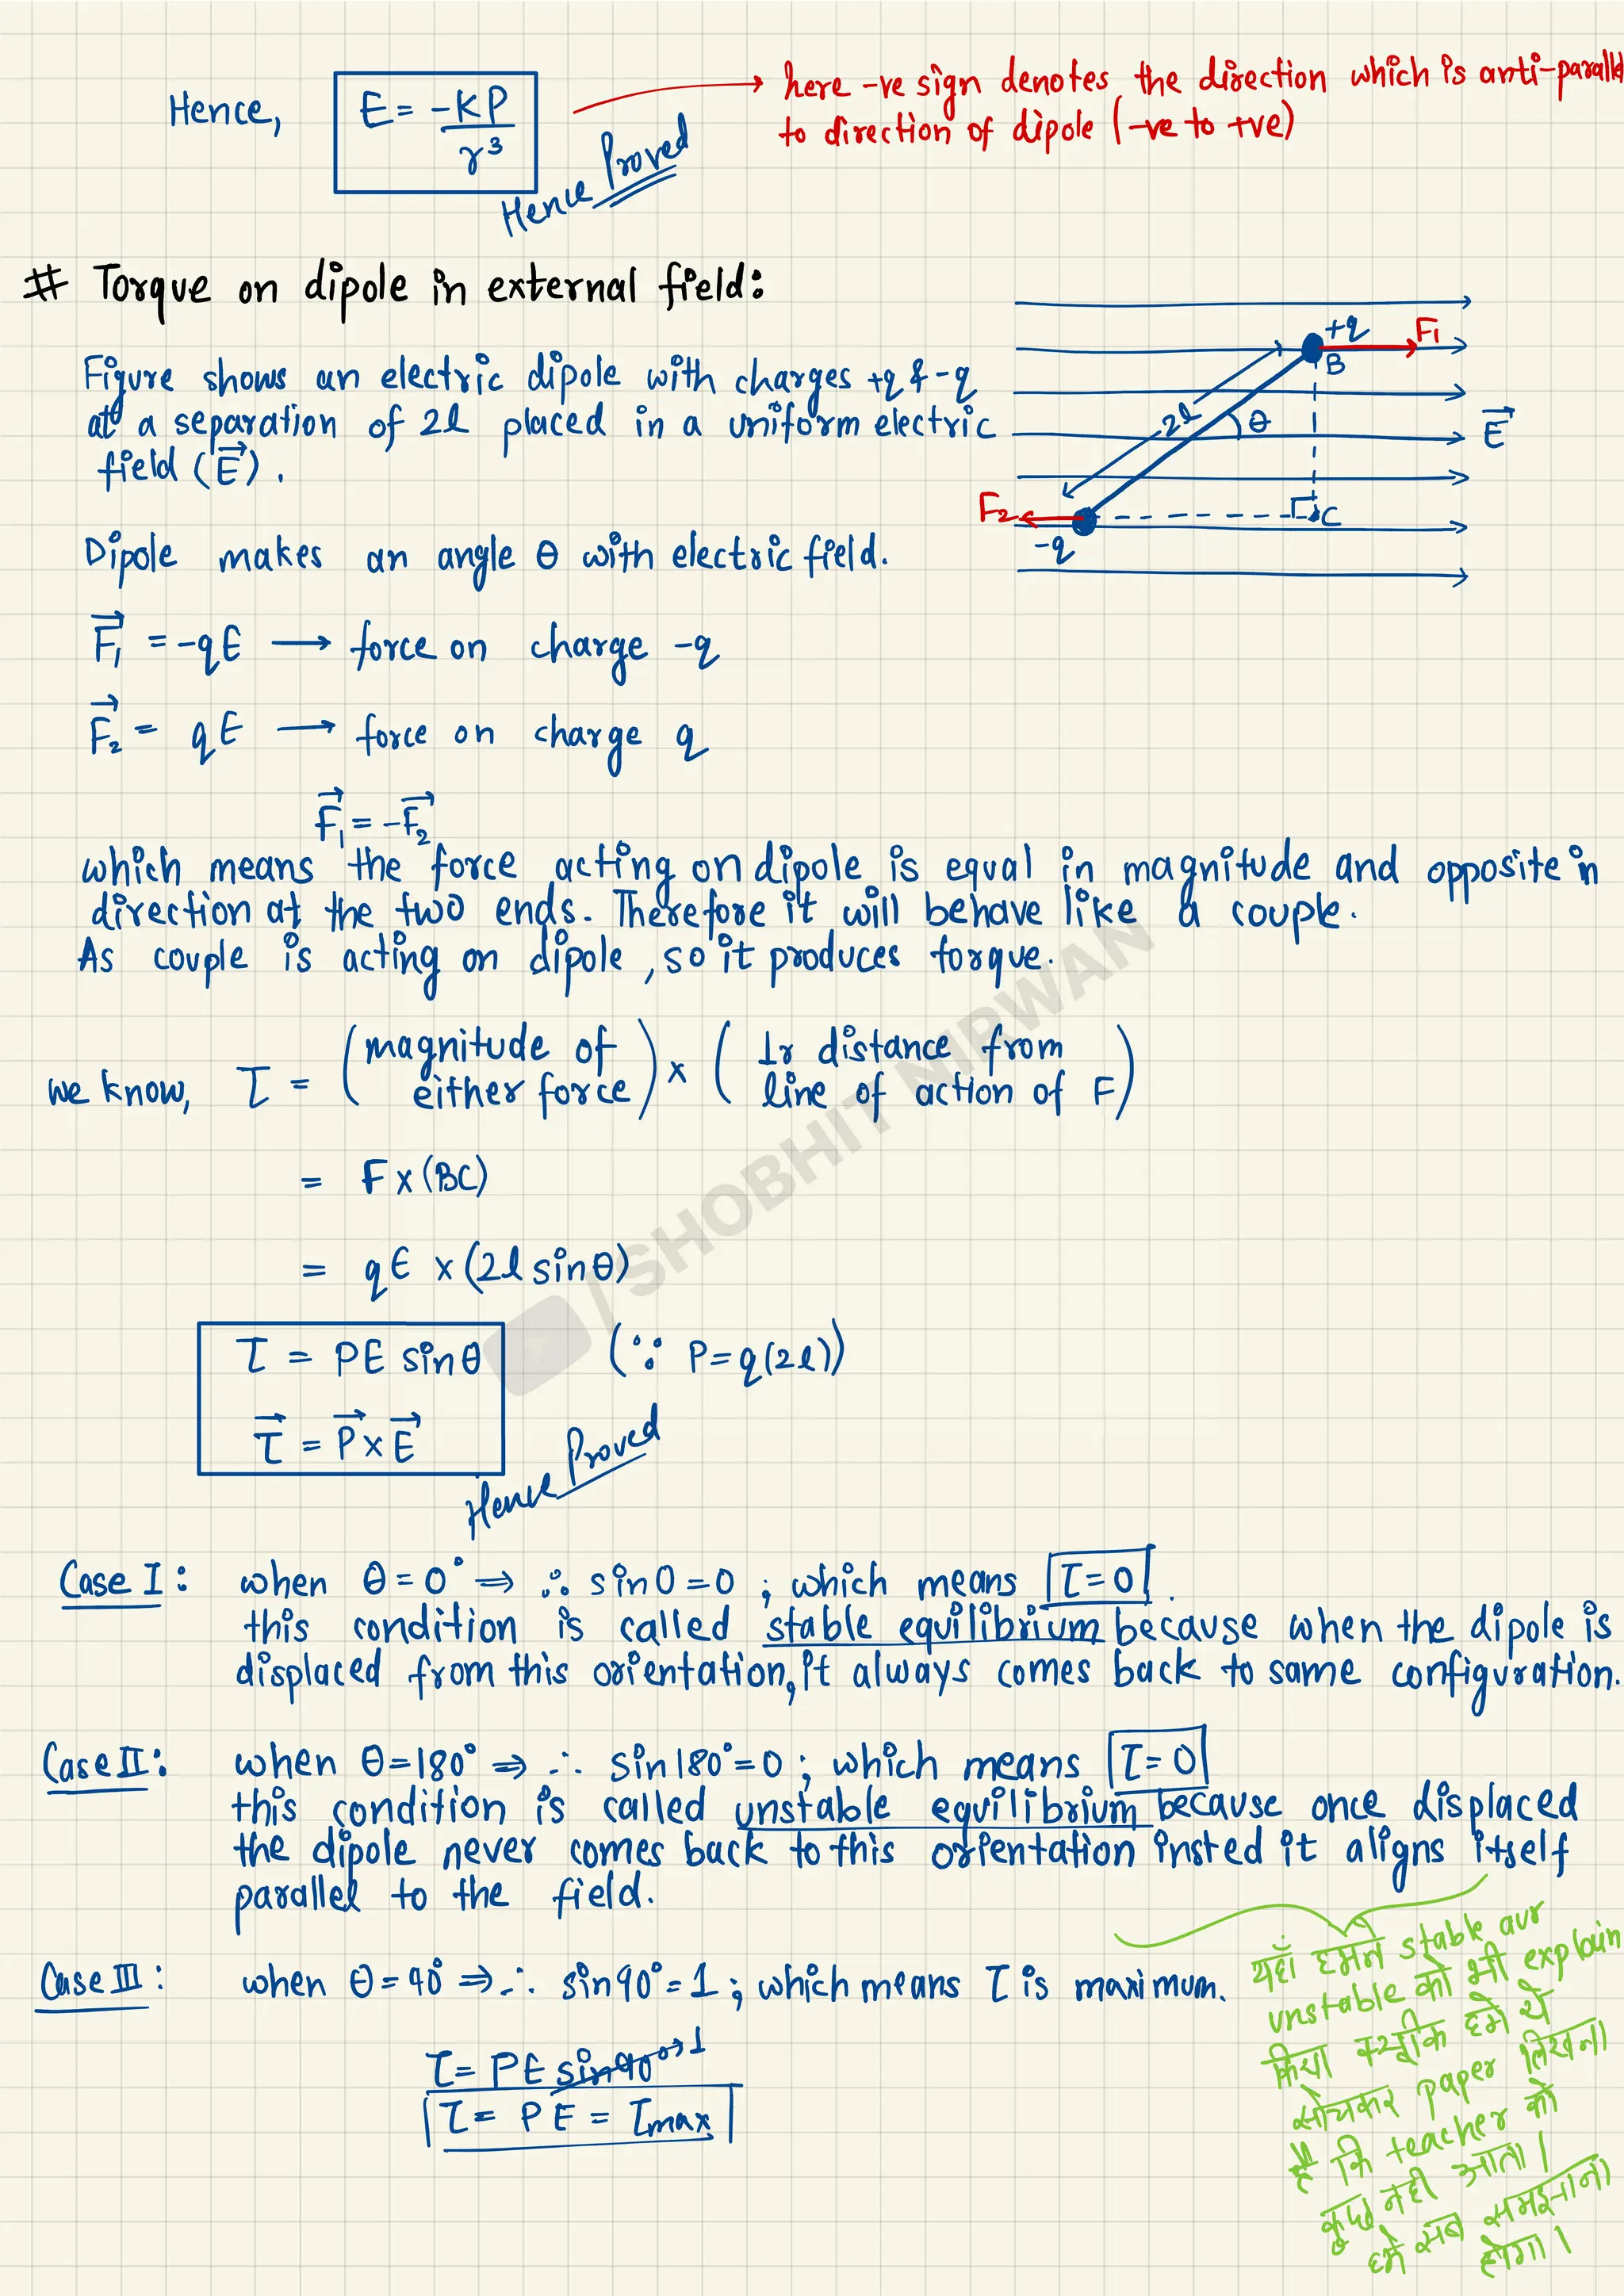 Hence, E = -KP/r³
here -ve sign denotes the direction which is anti-parallel
to direction of dipole (-ve to +ve)
Hence Proved
# Torque on dipole in external field:
Figure shows an electric dipole with charges +q & -q
at a separation of 2l placed in a uniform electric
field (E⃗).
+q
F₁
B
2l
θ
E⃗
F₂
C
-q
Dipole makes an angle θ with electric field.
F⃗₁ = -qE ⟶ force on charge -q
F⃗₂ = qE ⟶ force on charge q
F⃗₁ = -F⃗₂
which means the force acting on dipole is equal in magnitude and opposite in
direction at the two ends. Therefore it will behave like a couple.
As couple is acting on dipole, so it produces torque.
we know, τ = (magnitude of either force) × (⊥r distance from line of action of F)
= F × (BC)
= qE × (2l sinθ)
τ = PE sinθ (∵ P = q(2l))
τ⃗ = P⃗ × E⃗
Hence Proved
/ SHOBHIT NIRWAN
Case I: when θ = 0° ⇒ ∴ sin0 = 0 ; which means τ = 0.
this condition is called stable equilibrium because when the dipole is
displaced from this orientation, it always comes back to same configuration.
Case II: when θ = 180° ⇒ ∴ sin180° = 0 ; which means τ = 0
this condition is called unstable equilibrium because once displaced
the dipole never comes back to this orientation insted it aligns itself
parallel to the field.
Case III: when θ = 90° ⇒ ∴ sin90° = 1 ; which means τ is maximum.
τ = PE sin90° → 1
τ = PE = τmax
यहाँ हमने stable aur
unstable को भी explain
किया क्यूंकि हमे ये
सोचकर paper लिखना
है कि teacher को
कुछ नही आता।
हमे सब समझाना
होगा।